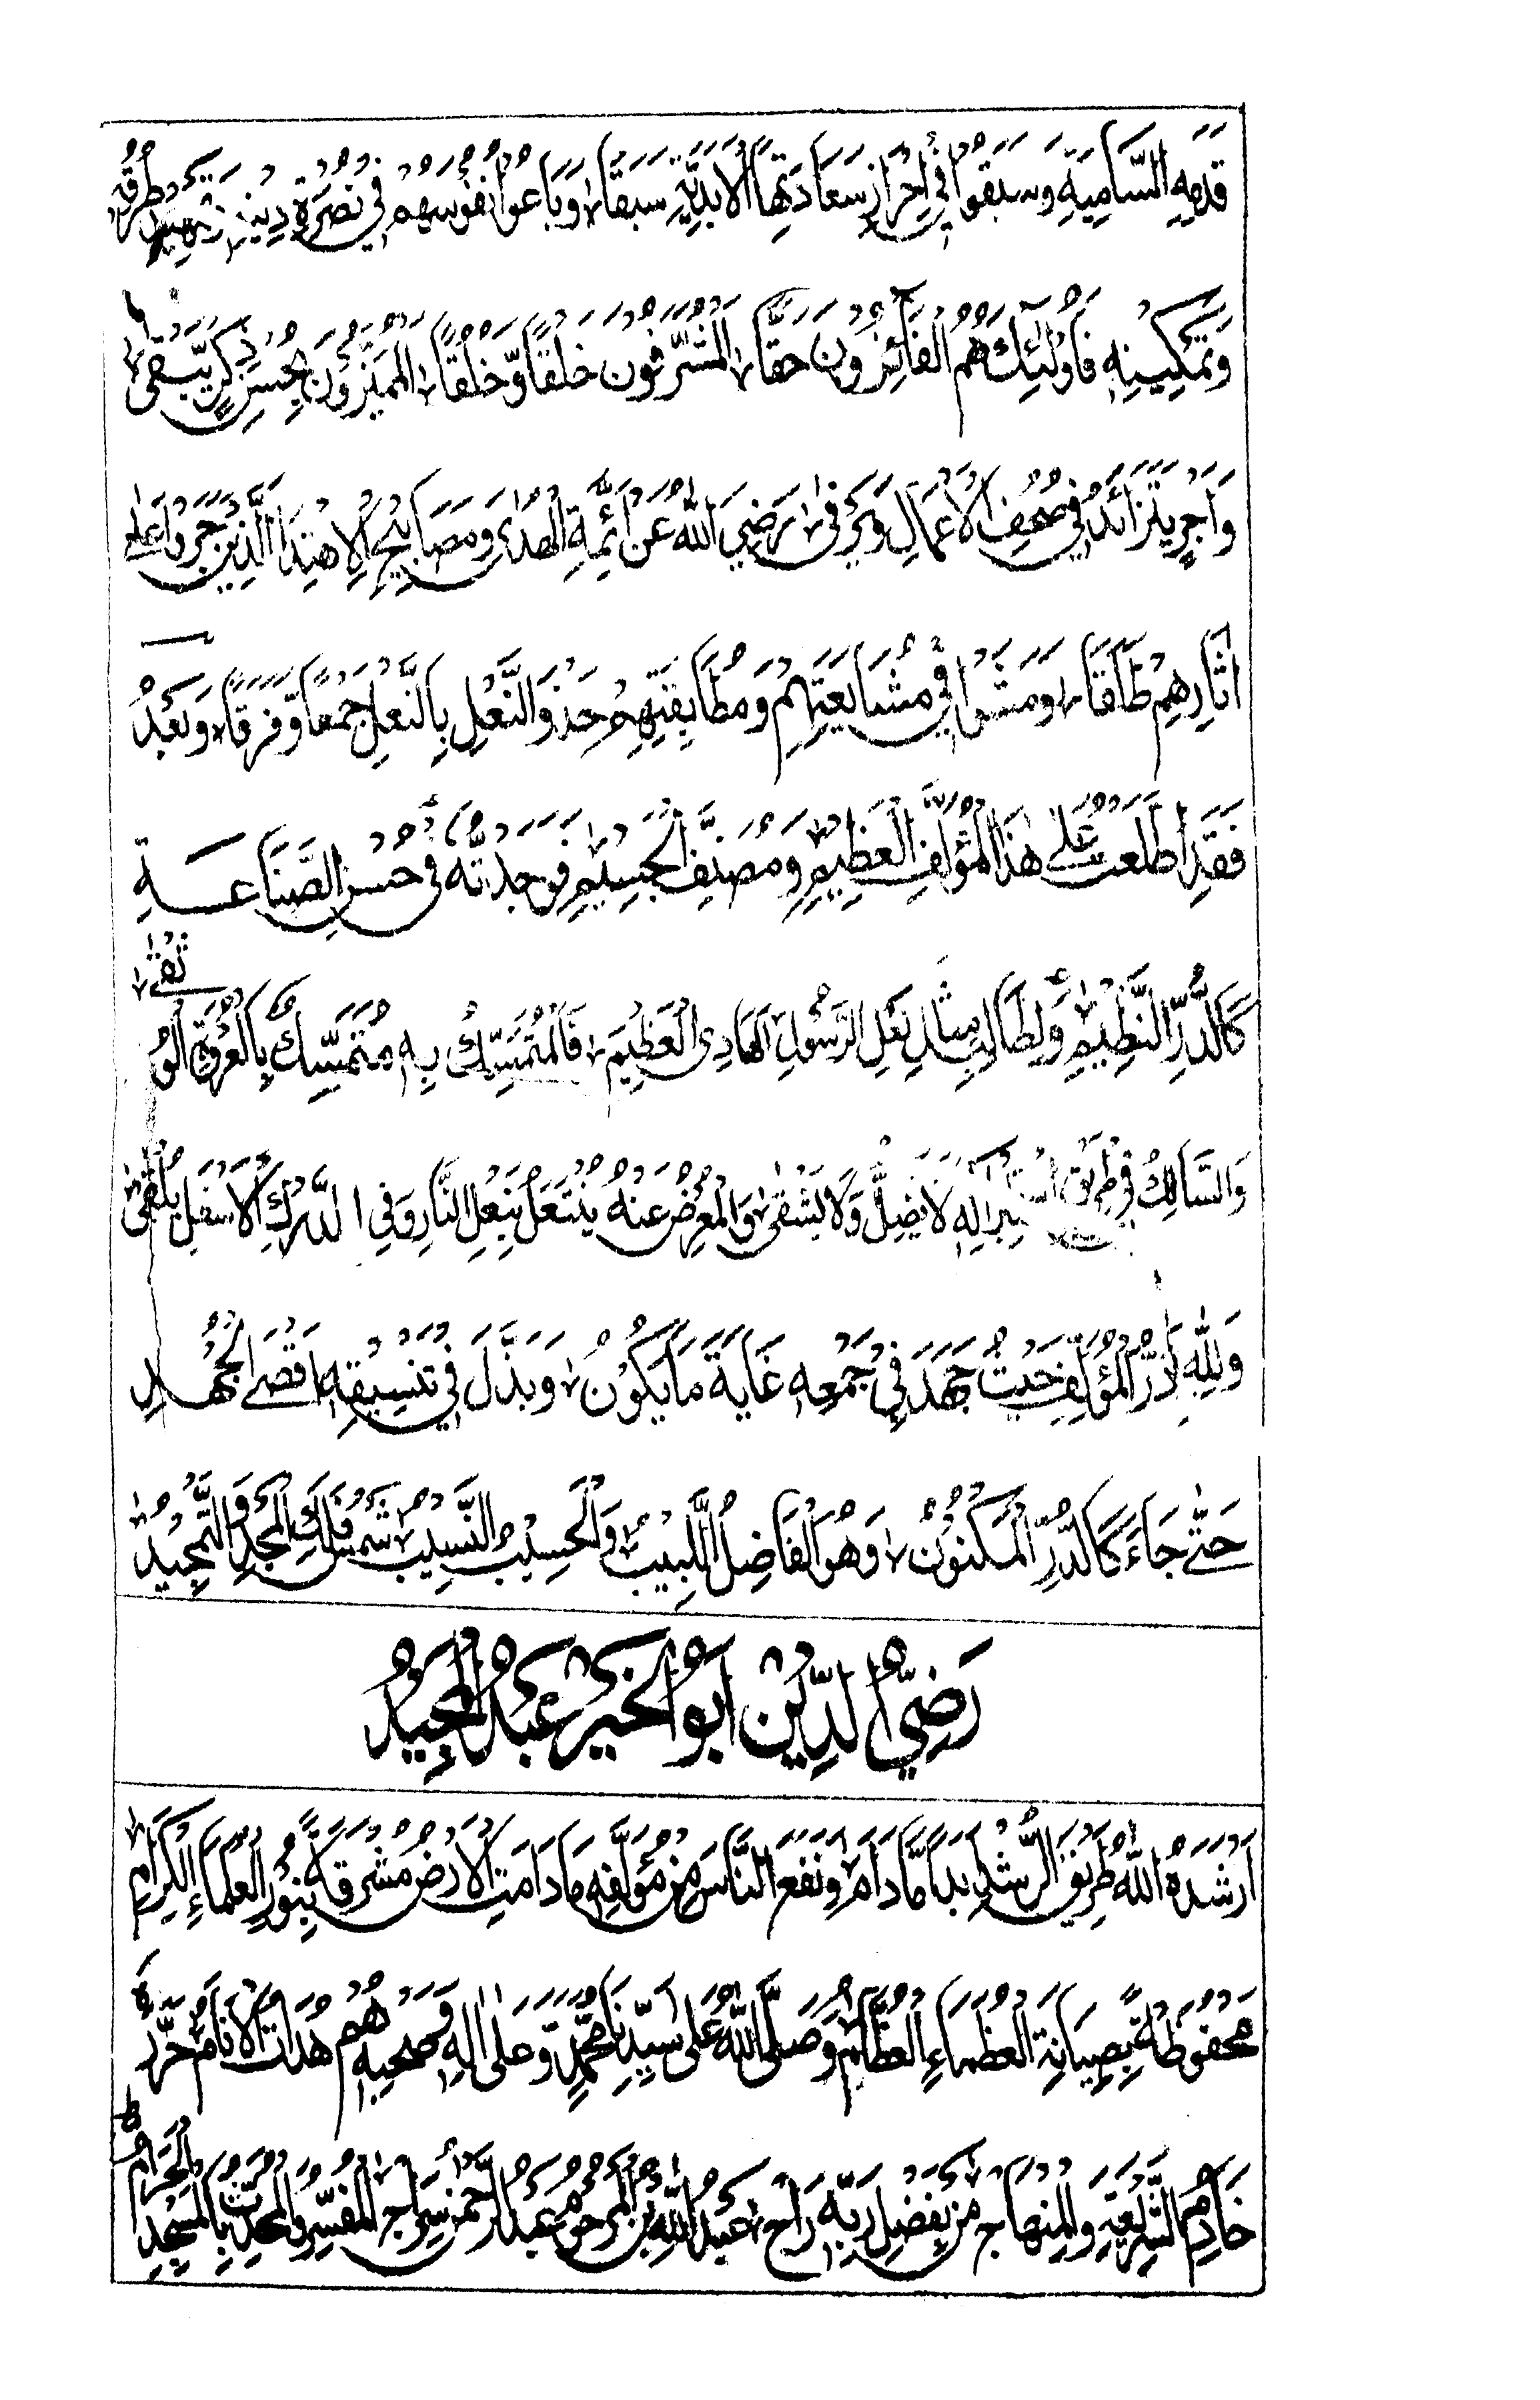 قَدَمِهِ السَّامِيَةِ وَسَبَقُوْا فِيْ اِحْرَازِ سَعَادَتِهَا الْاَبَدِيَّةِ سَبَقًا وَبَاعُوْا نُفُوْسَهُمْ فِيْ نُصْرَةِ دِيْنِهٖ وَتَشْيِيْدِ طُرُقِهٖ
وَتَمْكِيْنِهٖ فَاُولٰئِكَ هُمُ الْفَائِزُوْنَ حَقًّا الْمُشَرَّفُوْنَ خَلْقًا وَّخُلُقًا الْمُمَيَّزُوْنَ بِحُسْنِ ذِكْرٍ يَّبْقٰى
وَاَجْرٍ يَتَزَائَدُ فِيْ صُحُفِ الْاَعْمَالِ وَيَرْقٰى رَضِيَ اللّٰهُ عَنْ اَئِمَّةِ الْهُدٰى وَمَصَابِيْحِ الْاِهْتِدَا الَّذِيْنَ جَرَوْا عَلٰى
اٰثَارِهِمْ طَلَقًا وَمَشَوْا فِيْ مُشَايَعَتِهِمْ وَمُطَابَقَتِهِمْ حَذْوَ النَّعْلِ بِالنَّعْلِ جَمْعًا وَّفِرَقًا وَبَعْدُ
فَقَدِ اطَّلَعْتُ عَلٰى هٰذَا الْمُؤَلَّفِ الْعَظِيْمِ وَمُصَنَّفِ الْجَسِيْمِ فَوَجَدْتُّهٗ فِيْ حُسْنِ الصَّنَاعَةِ
كَالدُّرِّ النَّظِيْمِ وَلِطَالِبِ مِثَالِ نَعْلِ الرَّسُوْلِ الْهَادِى الْعَظِيْمِ فَالْمُتَمَسِّكُ بِهٖ مُتَمَسِّكٌ بِالْعُرْوَةِ الْوُثْقٰى
وَالسَّالِكُ فِيْ طَرِيْقِ لَا يَضِلُّ وَلَا يَشْقٰى وَالْمُعْرِضُ عَنْهُ يَنْتَعِلُ بِنَعْلِ النَّارِ وَفِى الدَّرْكِ الْاَسْفَلِ يُلْقٰى
وَلِلّٰهِ دَرُّ الْمُؤَلِّفِ حَيْثُ جَهَدَ فِيْ جَمْعِهٖ غَايَةَ مَا يَكُوْنُ وَبَذَلَ فِيْ تَنْسِيْقِهٖ اَقْصَى الْجُهْدِ
حَتّٰى جَاءَ كَالدُّرِّ الْمَكْنُوْنِ وَهُوَ الْفَاضِلُ اللَّبِيْبُ وَالْحَسِيْبُ النَّسِيْبُ شَمْسُ فَلَكِ الْمَجْدِ وَالتَّمْجِيْدِ
رَضِيُّ الدِّيْنِ اَبُو الْخَيْرِ عَبْدُ الْمَجِيْدُ
اَرْشَدَهُ اللّٰهُ طَرِيْقَ الرُّشْدِ اَبَدًا مَّادَامَ وَنَفَعَ النَّاسَ مِنْ مُؤَلَّفِهٖ مَادَامَتِ الْاَرْضُ مُشْرِقَةً بِنُوْرِ الْعُلَمَاءِ الْكِرَامِ
مَحْفُوْظَةً بِصِيَانَةِ الْعُظَمَاءِ الْعِظَامِ وَصَلَّى اللّٰهُ عَلٰى سَيِّدِنَا مُحَمَّدٍ وَّعَلٰى اٰلِهٖ وَصَحْبِهٖ هُمْ هُدَاتُ الْاَنَامِ حَرَّرَهٗ
خَادِمُ الشَّرِيْعَةِ وَالْمِنْهَاجِ مَنْ بِفَضْلِ رَبِّهٖ رَاجِ عَبْدُ اللّٰهِ بْنُ الْمَرْحُوْمِ عَبْدِ الرَّحْمٰنِ سِرَاجِ الْمُفَسِّرُ وَالْمُحَدِّثُ بِالْمَسْجِدِ الْحَرَامِ